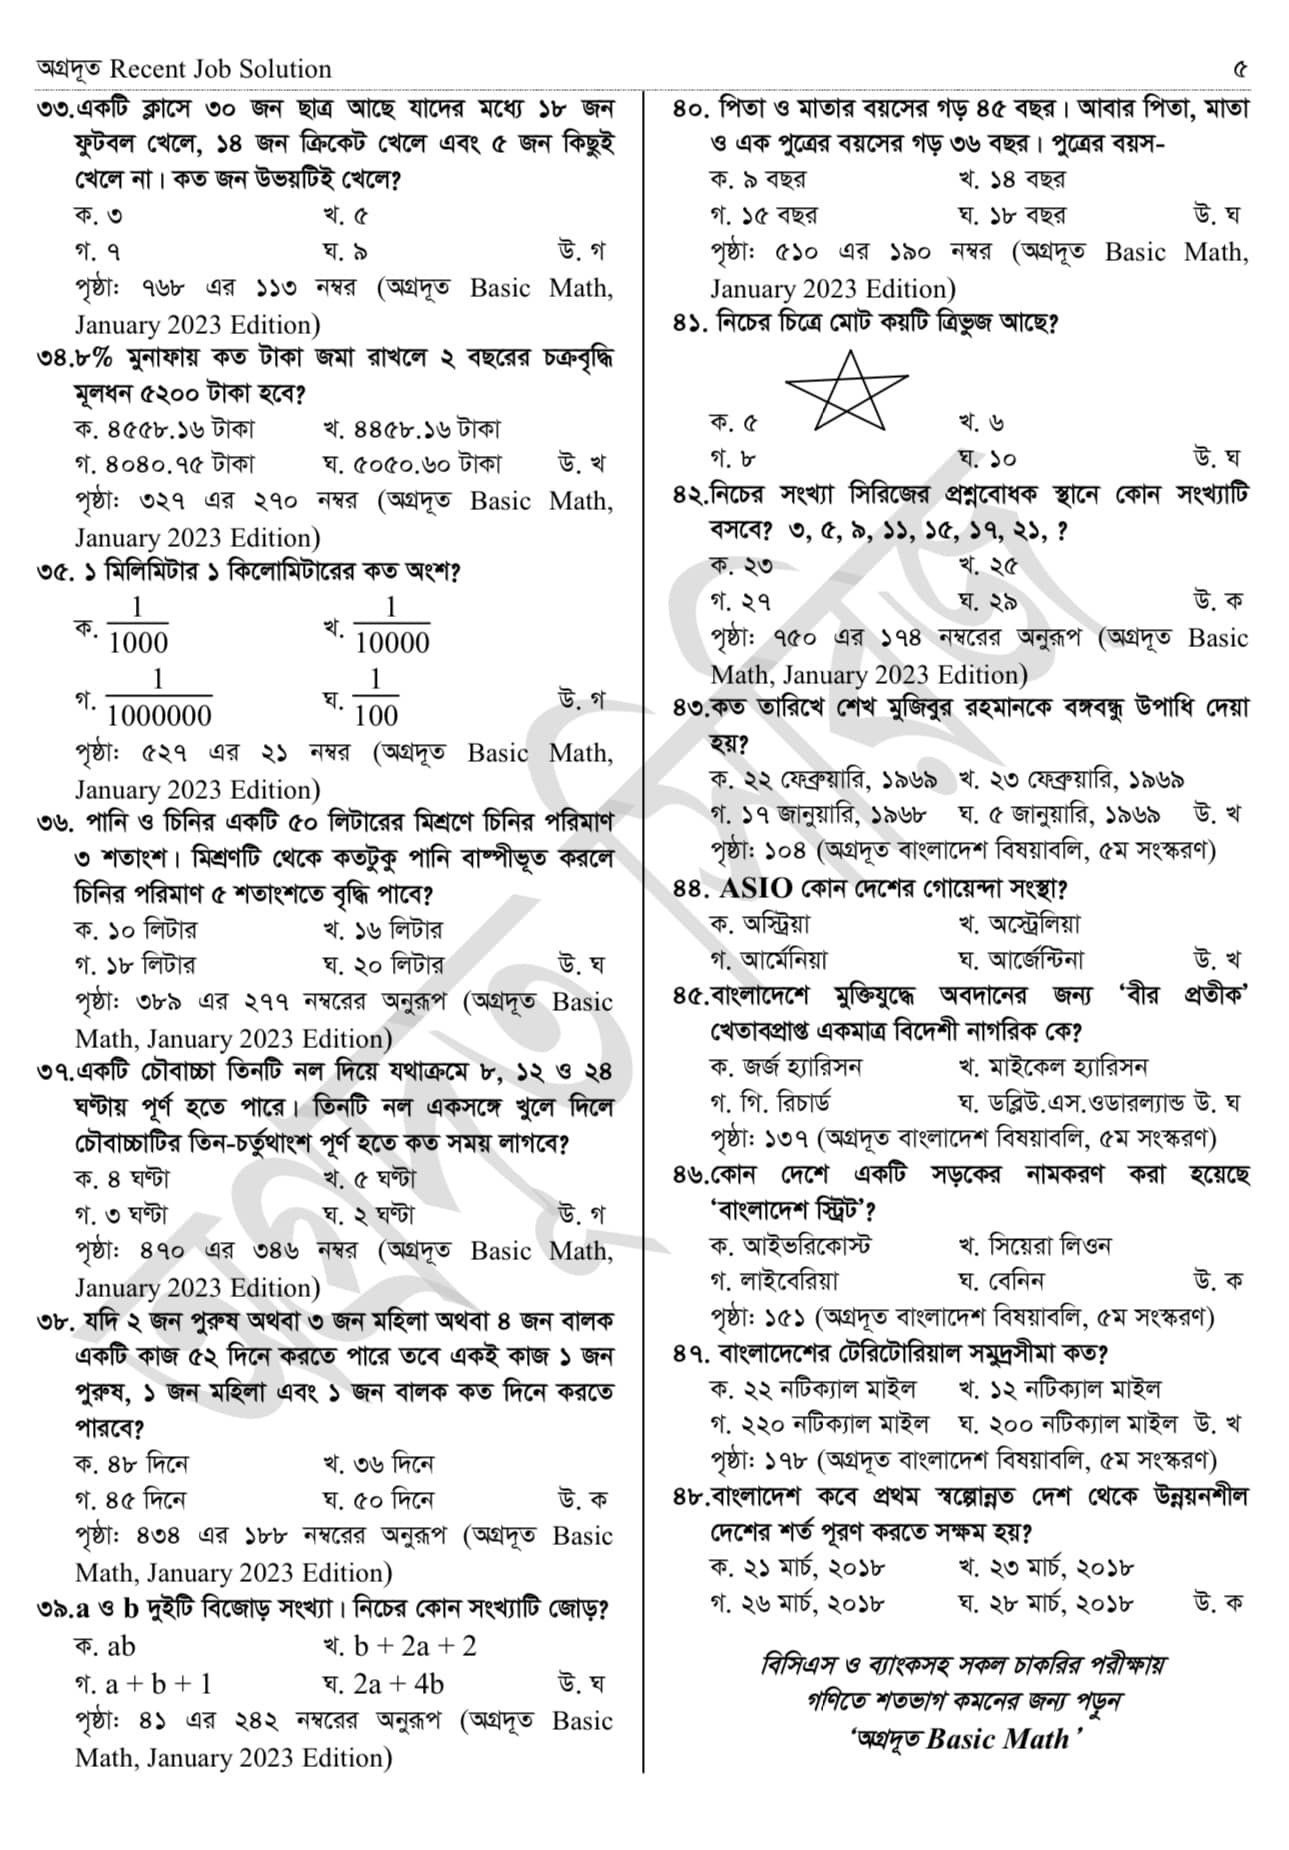 অগ্রদূত Recent Job Solution
৫
৩৩.একটি ক্লাসে ৩০ জন ছাত্র আছে যাদের মধ্যে ১৮ জন
ফুটবল খেলে, ১৪ জন ক্রিকেট খেলে এবং ৫ জন কিছুই
খেলে না। কত জন উভয়টিই খেলে?
ক. ৩ খ. ৫
গ. ৭ ঘ. ৯ উ. গ
পৃষ্ঠা: ৭৬৮ এর ১১৩ নম্বর (অগ্রদূত Basic Math,
January 2023 Edition)
৩৪.৮% মুনাফায় কত টাকা জমা রাখলে ২ বছরের চক্রবৃদ্ধি
মূলধন ৫২০০ টাকা হবে?
ক. ৪৫৫৮.১৬ টাকা খ. ৪৪৫৮.১৬ টাকা
গ. ৪০৪০.৭৫ টাকা ঘ. ৫০৫০.৬০ টাকা উ. খ
পৃষ্ঠা: ৩২৭ এর ২৭০ নম্বর (অগ্রদূত Basic Math,
January 2023 Edition)
৩৫. ১ মিলিমিটার ১ কিলোমিটারের কত অংশ?
ক. 1/1000 খ. 1/10000
গ. 1/1000000 ঘ. 1/100 উ. গ
পৃষ্ঠা: ৫২৭ এর ২১ নম্বর (অগ্রদূত Basic Math,
January 2023 Edition)
৩৬. পানি ও চিনির একটি ৫০ লিটারের মিশ্রণে চিনির পরিমাণ
৩ শতাংশ। মিশ্রণটি থেকে কতটুকু পানি বাষ্পীভূত করলে
চিনির পরিমাণ ৫ শতাংশতে বৃদ্ধি পাবে?
ক. ১০ লিটার খ. ১৬ লিটার
গ. ১৮ লিটার ঘ. ২০ লিটার উ. ঘ
পৃষ্ঠা: ৩৮৯ এর ২৭৭ নম্বরের অনুরূপ (অগ্রদূত Basic
Math, January 2023 Edition)
৩৭.একটি চৌবাচ্চা তিনটি নল দিয়ে যথাক্রমে ৮, ১২ ও ২৪
ঘণ্টায় পূর্ণ হতে পারে। তিনটি নল একসঙ্গে খুলে দিলে
চৌবাচ্চাটির তিন-চর্তুথাংশ পূর্ণ হতে কত সময় লাগবে?
ক. ৪ ঘণ্টা খ. ৫ ঘণ্টা
গ. ৩ ঘণ্টা ঘ. ২ ঘণ্টা উ. গ
পৃষ্ঠা: ৪৭০ এর ৩৪৬ নম্বর (অগ্রদূত Basic Math,
January 2023 Edition)
৩৮. যদি ২ জন পুরুষ অথবা ৩ জন মহিলা অথবা ৪ জন বালক
একটি কাজ ৫২ দিনে করতে পারে তবে একই কাজ ১ জন
পুরুষ, ১ জন মহিলা এবং ১ জন বালক কত দিনে করতে
পারবে?
ক. ৪৮ দিনে খ. ৩৬ দিনে
গ. ৪৫ দিনে ঘ. ৫০ দিনে উ. ক
পৃষ্ঠা: ৪৩৪ এর ১৮৮ নম্বরের অনুরূপ (অগ্রদূত Basic
Math, January 2023 Edition)
৩৯.a ও b দুইটি বিজোড় সংখ্যা। নিচের কোন সংখ্যাটি জোড়?
ক. ab খ. b + 2a + 2
গ. a + b + 1 ঘ. 2a + 4b উ. ঘ
পৃষ্ঠা: ৪১ এর ২৪২ নম্বরের অনুরূপ (অগ্রদূত Basic
Math, January 2023 Edition)
৪০. পিতা ও মাতার বয়সের গড় ৪৫ বছর। আবার পিতা, মাতা
ও এক পুত্রের বয়সের গড় ৩৬ বছর। পুত্রের বয়স-
ক. ৯ বছর খ. ১৪ বছর
গ. ১৫ বছর ঘ. ১৮ বছর উ. ঘ
পৃষ্ঠা: ৫১০ এর ১৯০ নম্বর (অগ্রদূত Basic Math,
January 2023 Edition)
৪১. নিচের চিত্রে মোট কয়টি ত্রিভুজ আছে?
ক. ৫ খ. ৬
গ. ৮ ঘ. ১০ উ. ঘ
৪২.নিচের সংখ্যা সিরিজের প্রশ্নবোধক স্থানে কোন সংখ্যাটি
বসবে? ৩, ৫, ৯, ১১, ১৫, ১৭, ২১, ?
ক. ২৩ খ. ২৫
গ. ২৭ ঘ. ২৯ উ. ক
পৃষ্ঠা: ৭৫০ এর ১৭৪ নম্বরের অনুরূপ (অগ্রদূত Basic
Math, January 2023 Edition)
৪৩.কত তারিখে শেখ মুজিবুর রহমানকে বঙ্গবন্ধু উপাধি দেয়া
হয়?
ক. ২২ ফেব্রুয়ারি, ১৯৬৯ খ. ২৩ ফেব্রুয়ারি, ১৯৬৯
গ. ১৭ জানুয়ারি, ১৯৬৮ ঘ. ৫ জানুয়ারি, ১৯৬৯ উ. খ
পৃষ্ঠা: ১০৪ (অগ্রদূত বাংলাদেশ বিষয়াবলি, ৫ম সংস্করণ)
৪৪. ASIO কোন দেশের গোয়েন্দা সংস্থা?
ক. অস্ট্রিয়া খ. অস্ট্রেলিয়া
গ. আর্মেনিয়া ঘ. আর্জেন্টিনা উ. খ
৪৫.বাংলাদেশে মুক্তিযুদ্ধে অবদানের জন্য ‘বীর প্রতীক’
খেতাবপ্রাপ্ত একমাত্র বিদেশী নাগরিক কে?
ক. জর্জ হ্যারিসন খ. মাইকেল হ্যারিসন
গ. গি. রিচার্ড ঘ. ডব্লিউ.এস.ওডারল্যান্ড উ. ঘ
পৃষ্ঠা: ১৩৭ (অগ্রদূত বাংলাদেশ বিষয়াবলি, ৫ম সংস্করণ)
৪৬.কোন দেশে একটি সড়কের নামকরণ করা হয়েছে
‘বাংলাদেশ স্ট্রিট’?
ক. আইভরিকোস্ট খ. সিয়েরা লিওন
গ. লাইবেরিয়া ঘ. বেনিন উ. ক
পৃষ্ঠা: ১৫১ (অগ্রদূত বাংলাদেশ বিষয়াবলি, ৫ম সংস্করণ)
৪৭. বাংলাদেশের টেরিটোরিয়াল সমুদ্রসীমা কত?
ক. ২২ নটিক্যাল মাইল খ. ১২ নটিক্যাল মাইল
গ. ২২০ নটিক্যাল মাইল ঘ. ২০০ নটিক্যাল মাইল উ. খ
পৃষ্ঠা: ১৭৮ (অগ্রদূত বাংলাদেশ বিষয়াবলি, ৫ম সংস্করণ)
৪৮.বাংলাদেশ কবে প্রথম স্বল্পোন্নত দেশ থেকে উন্নয়নশীল
দেশের শর্ত পূরণ করতে সক্ষম হয়?
ক. ২১ মার্চ, ২০১৮ খ. ২৩ মার্চ, ২০১৮
গ. ২৬ মার্চ, ২০১৮ ঘ. ২৮ মার্চ, ২০১৮ উ. ক
বিসিএস ও ব্যাংকসহ সকল চাকরির পরীক্ষায়
গণিতে শতভাগ কমনের জন্য পড়ুন
‘অগ্রদূত Basic Math’
অগ্রদূত সিরিজ